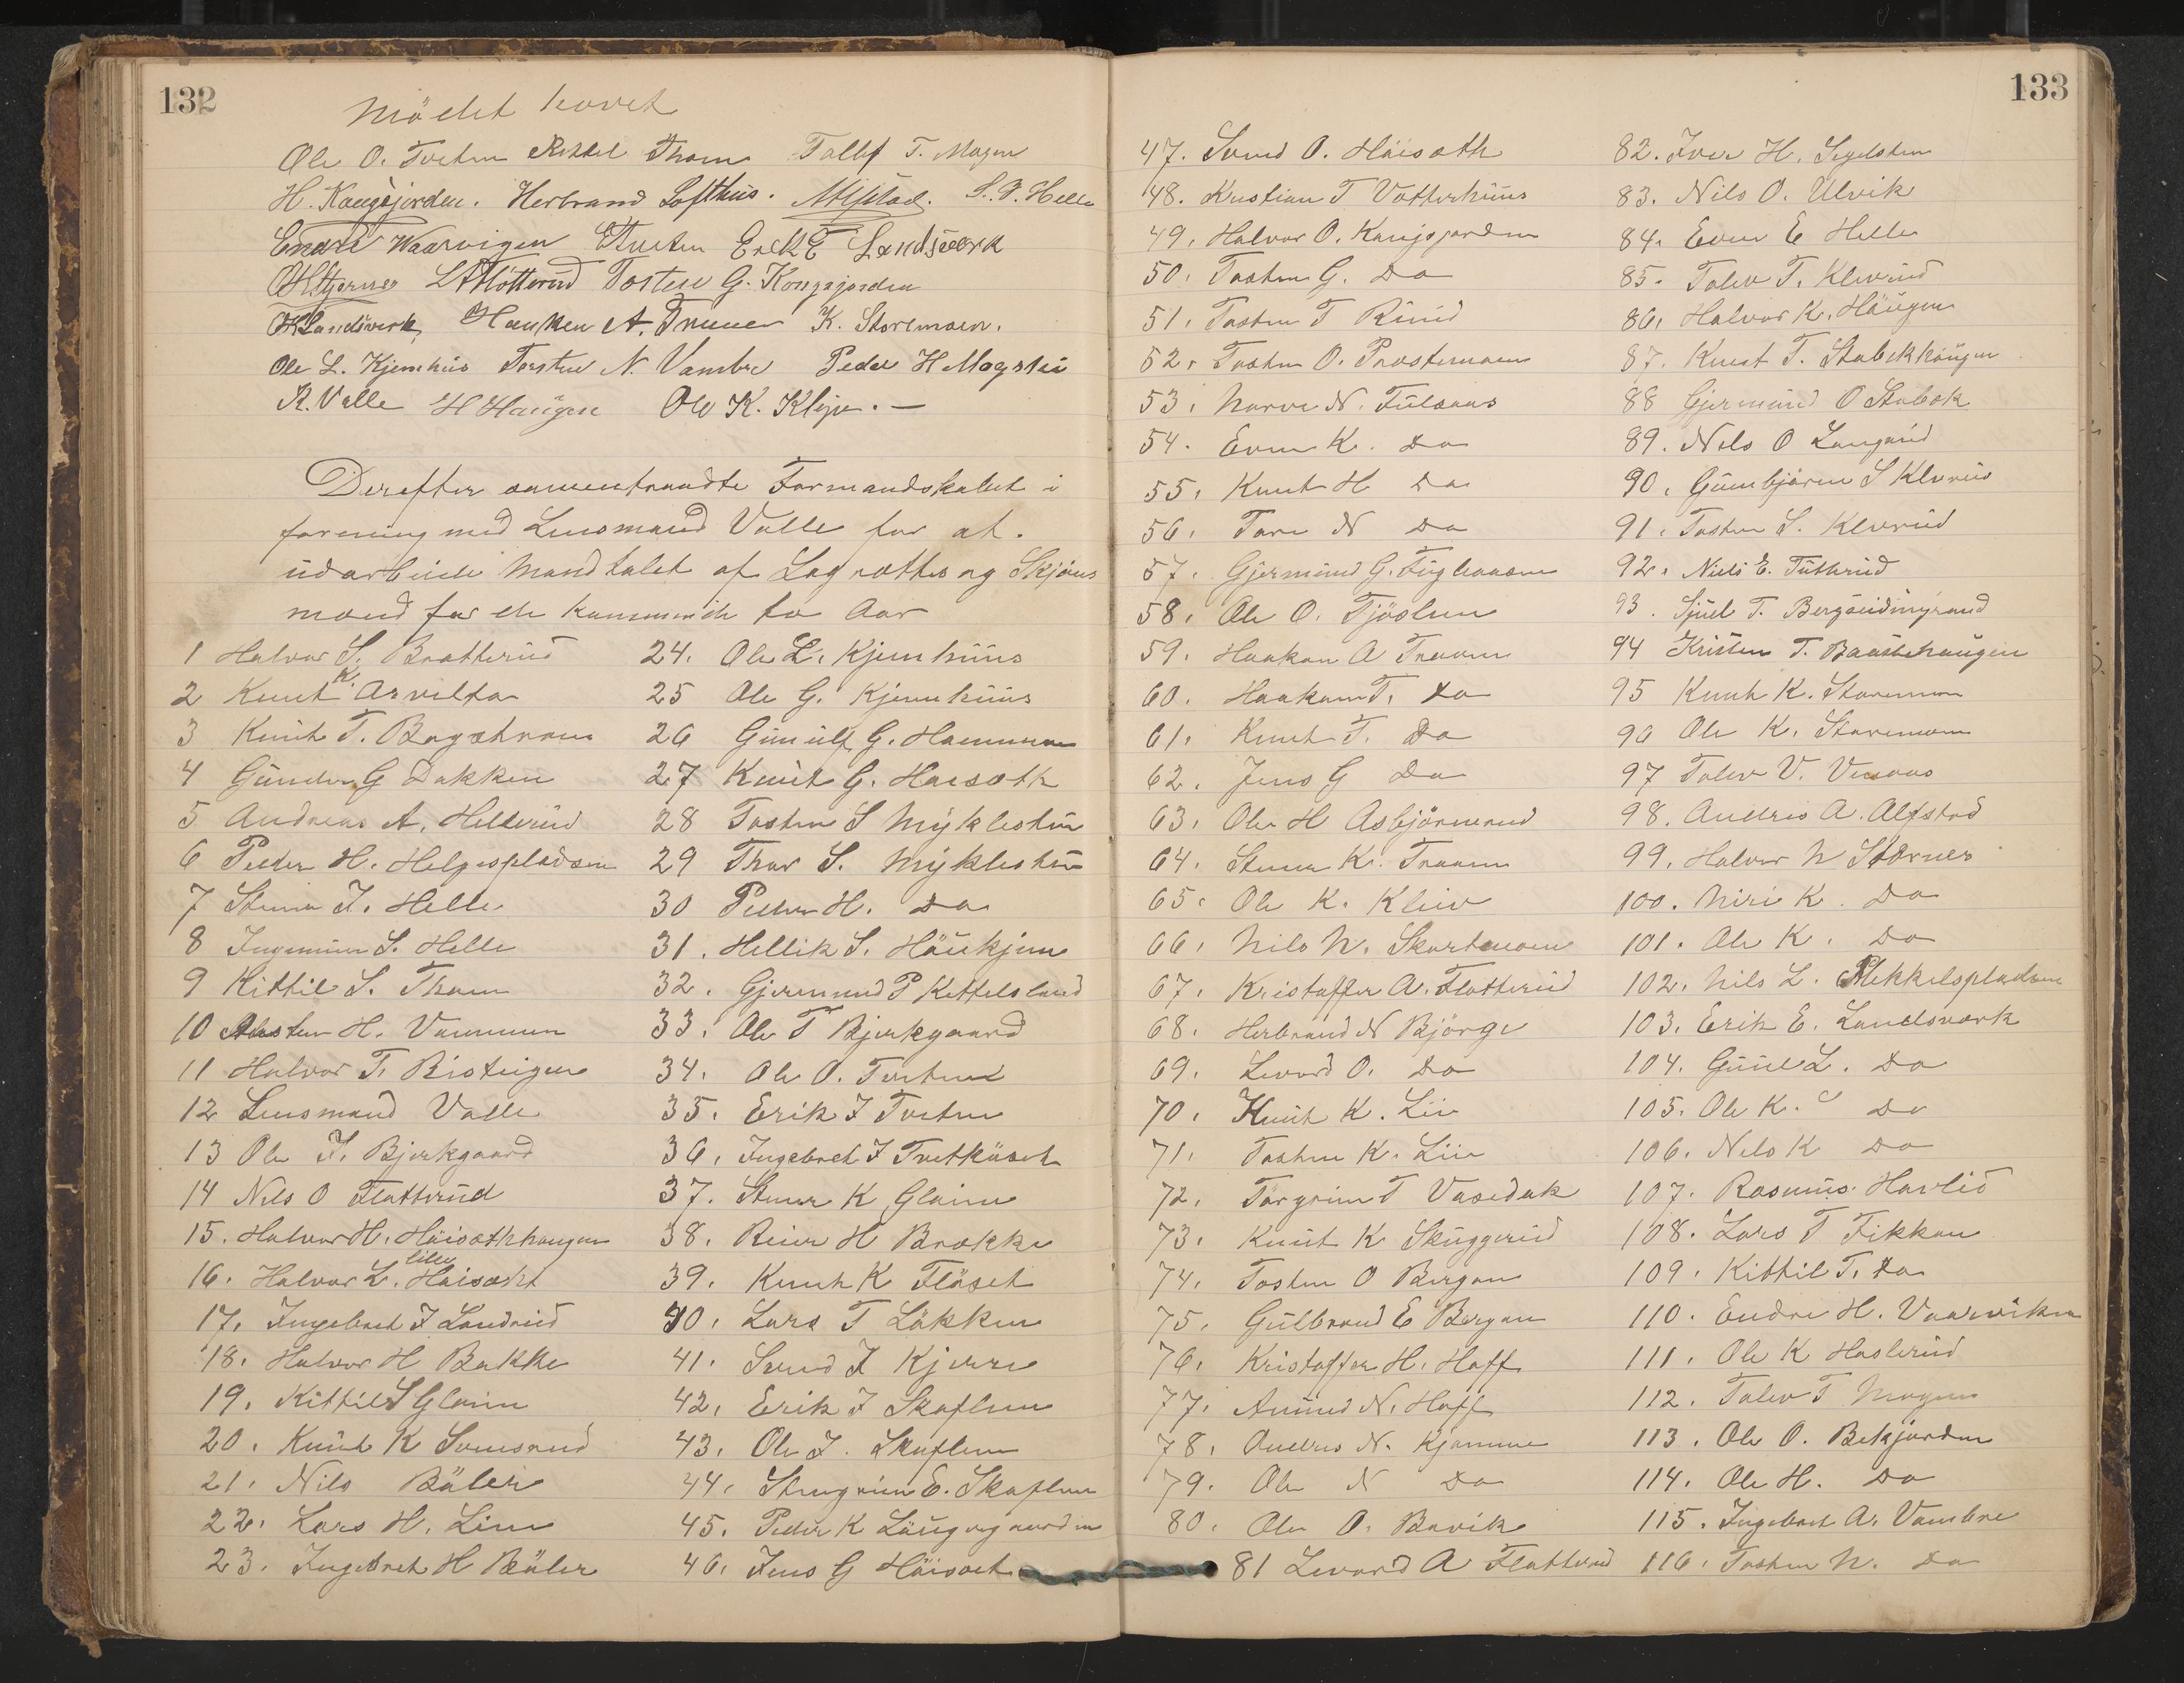 132
Mödet hævet
Ole O. Tveten Kittel Thoen Tollef T. Mogen
H. Kongsjorden. Herbrand Lofthus. S. P. Helle
Endre Waarvigen E Tveten Erik E Landsværk
L A Flötterud Tosten G. Kongsjorden
O K Landsverk, Haaken A. Traaen K. Storemoen.
Ole L. Kjemhus Torsten N. Vambre Peder H Mogstei
K. Valle H Haugen Ole K. Kleiv. —
Derefter sammentraadte Formandskabet i
forening med Lensmand Valle for at
udarbeide Mandtalet af Lagrættes og Skjöns
mænd for de kommende to Aar
1 Halvor S. Bratterud
2 Knut K. Arvelta
3 Knut T. Bagstraen
4 Gunder G Dakken
5 Andreas A. Hellerud
6 Peder H. Helgespladsen
7 Stener J. Helle
8 Ingemun S. Helle
9 Kittil S. Thoen
10 H. Vammen
11 Halvor T. Bisteigen
12 Lensmand Valle
13 Ole J. Bjerkgaard
14 Nils O Flatterud
15. Halvor H. Höisæthhaugen
16. Halvor L. lille Höisæth
17. Ingebret J Landerud
18. Halvor H Bakke
19. Kittil S Glaim
20. Knut K Svensrud
21. Nils Böler
22. Lars H. Lien
23. Ingebret H Böler
24. Ole L. Kjemhuus
25 Ole G. Kjemhuus
26 Gunulf G. Hammeren
27 Knut G. Haisæth
28 Tosten S Myklestu
29 Thor S. Myklestu
30 Peder H. Do
31. Hellik S. Höukjem
32. Gjermund P Kettelsland
33. Ole T Bjerkgaard
34. Ole O. Tveten
35. Erik J Tveten
36. Ingebret J Tvetkåset
37. Stener K Glaim
38. Reier H Brække
39. Knut K Flåset
40. Lars T Løkken
41. Svend J Kjerre
42. Erik J Skaflem
43. Ole J. Skaflem
44. Stengrim E. Skaflem
45. Peder K Langegaarden
46. Jens G Höisæt
133
47. Svend O. Höisæth
48. Kristian T Votterhuus
49. Halvor O. Kongsjorden
50. Tosten G. Do
51. Tosten T Ruud
52. Tosten O. Præstemoen
53. Narve N. Fulsaas
54. Even K. Do
55. Knut H Do
56. Tore N Do
57. Gjermund G. Fuglaasen
58. Ole O. Tjöslem
59. Haakon A Traaen
60. Haakon T. Do
61. Knut T. Do
62. Jens G Do
63. Ole H Asbjörnerud
64. Stener K. Traaen
65. Ole K. Kleiv
66. Nils N. Skartemoen
67. Kristoffer A. Flatterud
68. Herbrand N Björge
69. Levord O. Do
70. Knut K. Lie
71. Tosten K. Lie
72. Torgrim T Vasedak
73. Knut K Skuggerud
74. Tosten O Bergan
75. Gulbrand E Bergan
76. Kristoffer H. Hoff
77. Amund N. Hoff
78. Andres N. Kjomme
79. Ole N Do
80. Ole O. Bavik
81 Levord A Flatterud
82. Iver H. Segelsten
83. Nils O. Ulvik
84. Even E Helle
85. Tolev T. Kleverud
86. Halvor K. Haugen
87. Knut T. Stabekhaugen
88 Gjermund O Stabæk
89. Nils O Langerud
90. Gunbjörn S Kleverud
91. Tosten S. Kleverud
92. Niels E. Tutherud
93. Sjul T. Bergseidmyrand
94 Kristen T. Baastehaugen
95 Knut K. Storemoen
96 Ole K. Storemoen
97 Tolev V. Vesaas
98. Andres A. Alfstad
99. Halvor N Stærnes
100. Niri K. Do
101. Ole K. Do
102. Nils L. Mekkelspladsen
103. Erik E. Landsværk
104. Guul L. Do
105. Ole K. Do
106. Nels K Do
107. Rasmus Havlid
108. Lars T Fikkan
109. Kittil T. Do
110. Endre H. Vaarviken
111. Ole K Haslerud
112. Tolev T Mogen
113. Ole O. Bekjorden
114. Ole H. Do
115. Ingebret A. Vambre
116. Tosten N. Do